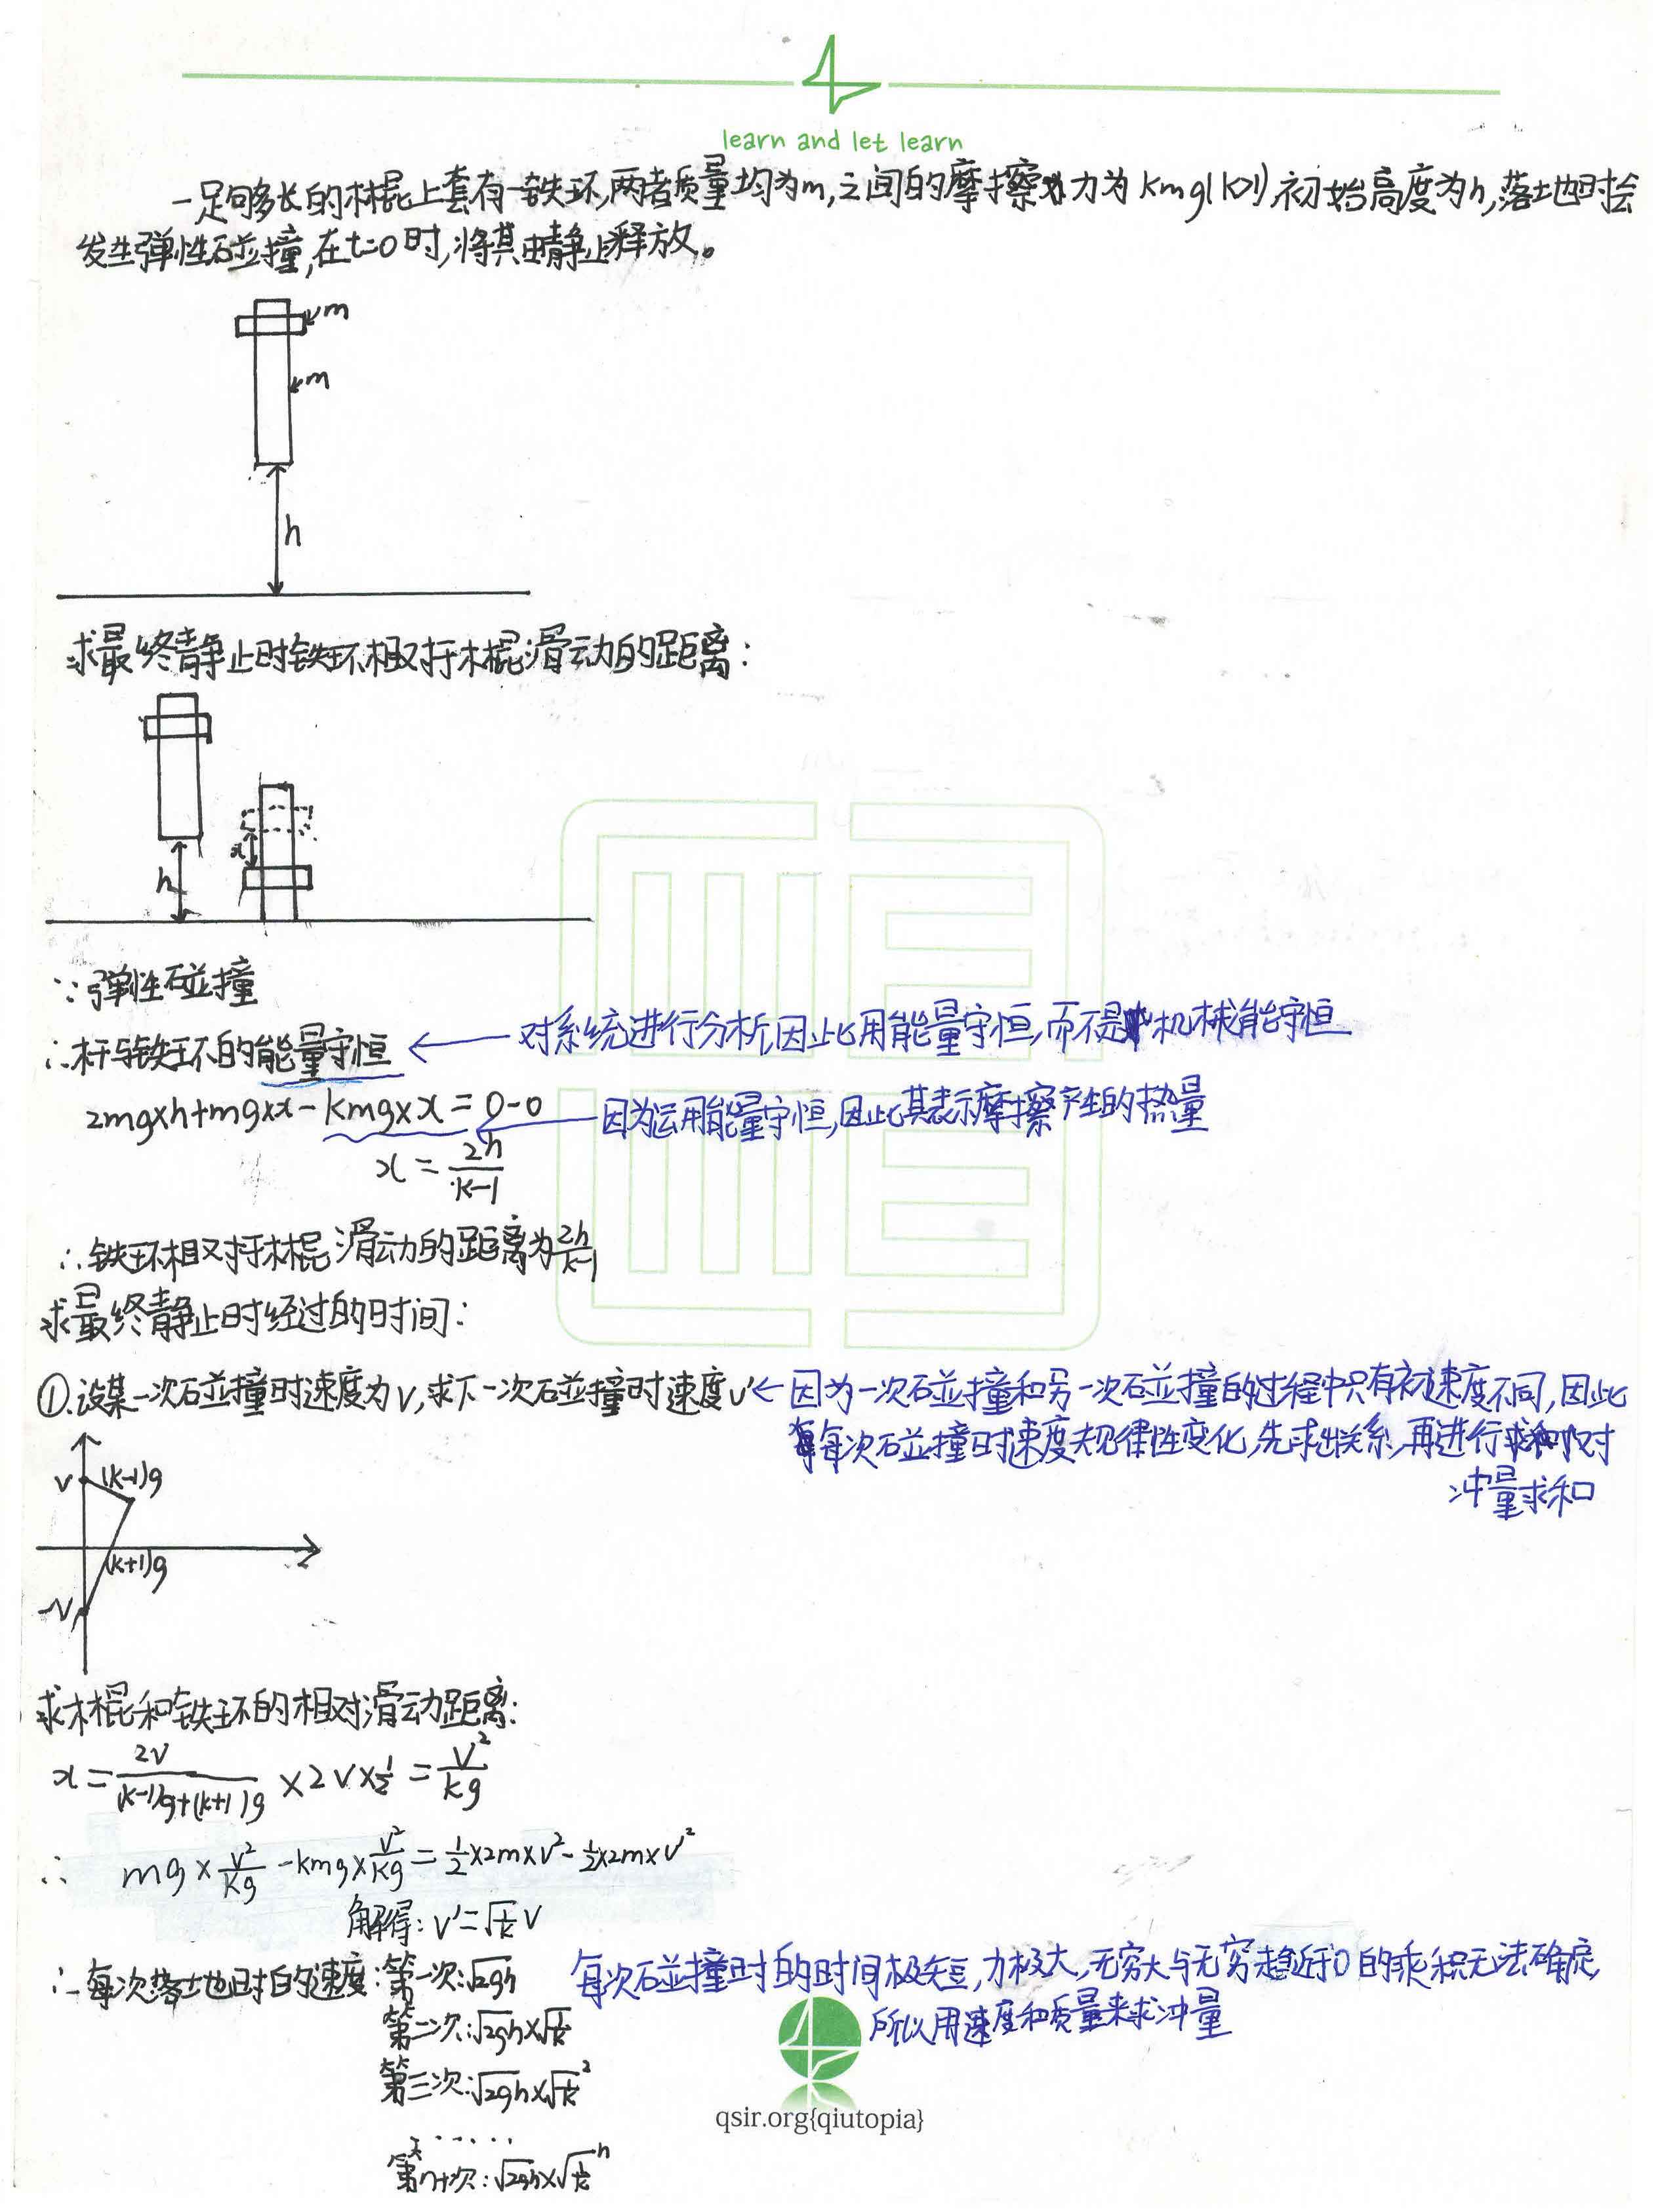 learn and let learn
一足够多长的木棍上套有一铁环,两者质量均为m,之间的摩擦力为kmg(k>1),初始高度为h,落地时会
发生弹性碰撞,在t=0时,将其由静止释放。
m
m
h
求最终静止时铁环相对于木棍滑动的距离:
h
x
∵弹性碰撞
∴杆与铁环的能量守恒 ← 对系统进行分析,因此用能量守恒,而不是机械能守恒
2mg×h+mg×x-kmg×x=0-0 因为运用能量守恒,因此其表示摩擦产生的热量
x=2h/(k-1)
∴铁环相对于木棍滑动的距离为2h/(k-1)
求最终静止时经过的时间:
①.设某一次碰撞时速度为v,求下一次碰撞时速度v' ← 因为一次碰撞和另一次碰撞的过程中只有初速度不同,因此
每次碰撞时速度规律性变化,先求出关系,再进行对
冲量求和
v (k-1)g
(k+1)g
-v
求木棍和铁环的相对滑动距离:
x=2v/((k-1)g+(k+1)g)×2v×1/2=v²/kg
∴ mg×v²/kg-kmg×v²/kg=1/2×2m×v²-1/2×2m×v'²
解得:v'=√(1/k)v
∴每次落地时的速度:第一次:√2gh 每次碰撞时的时间极短,力极大,无穷大与无穷趋近于0的乘积无法确定,
第二次:√2gh×√(1/k) 所以用速度和质量来求冲量
第三次:√2gh×√(1/k)²
......
第n+1次:√2gh×√(1/k)ⁿ
qsir.org{qiutopia}